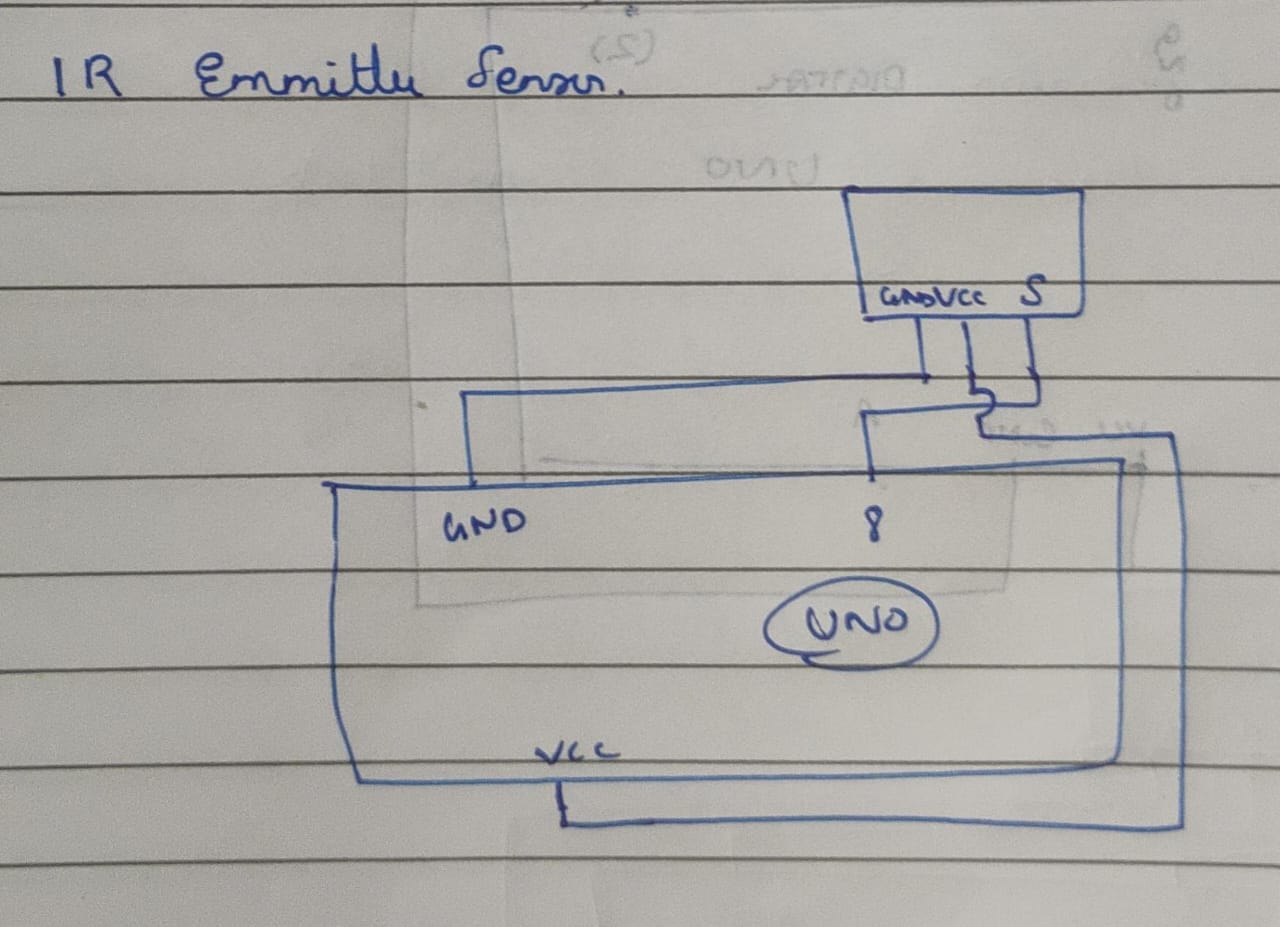 IR Emmitter Sensor.
GND VCC S
GND 8
UNO
VCC